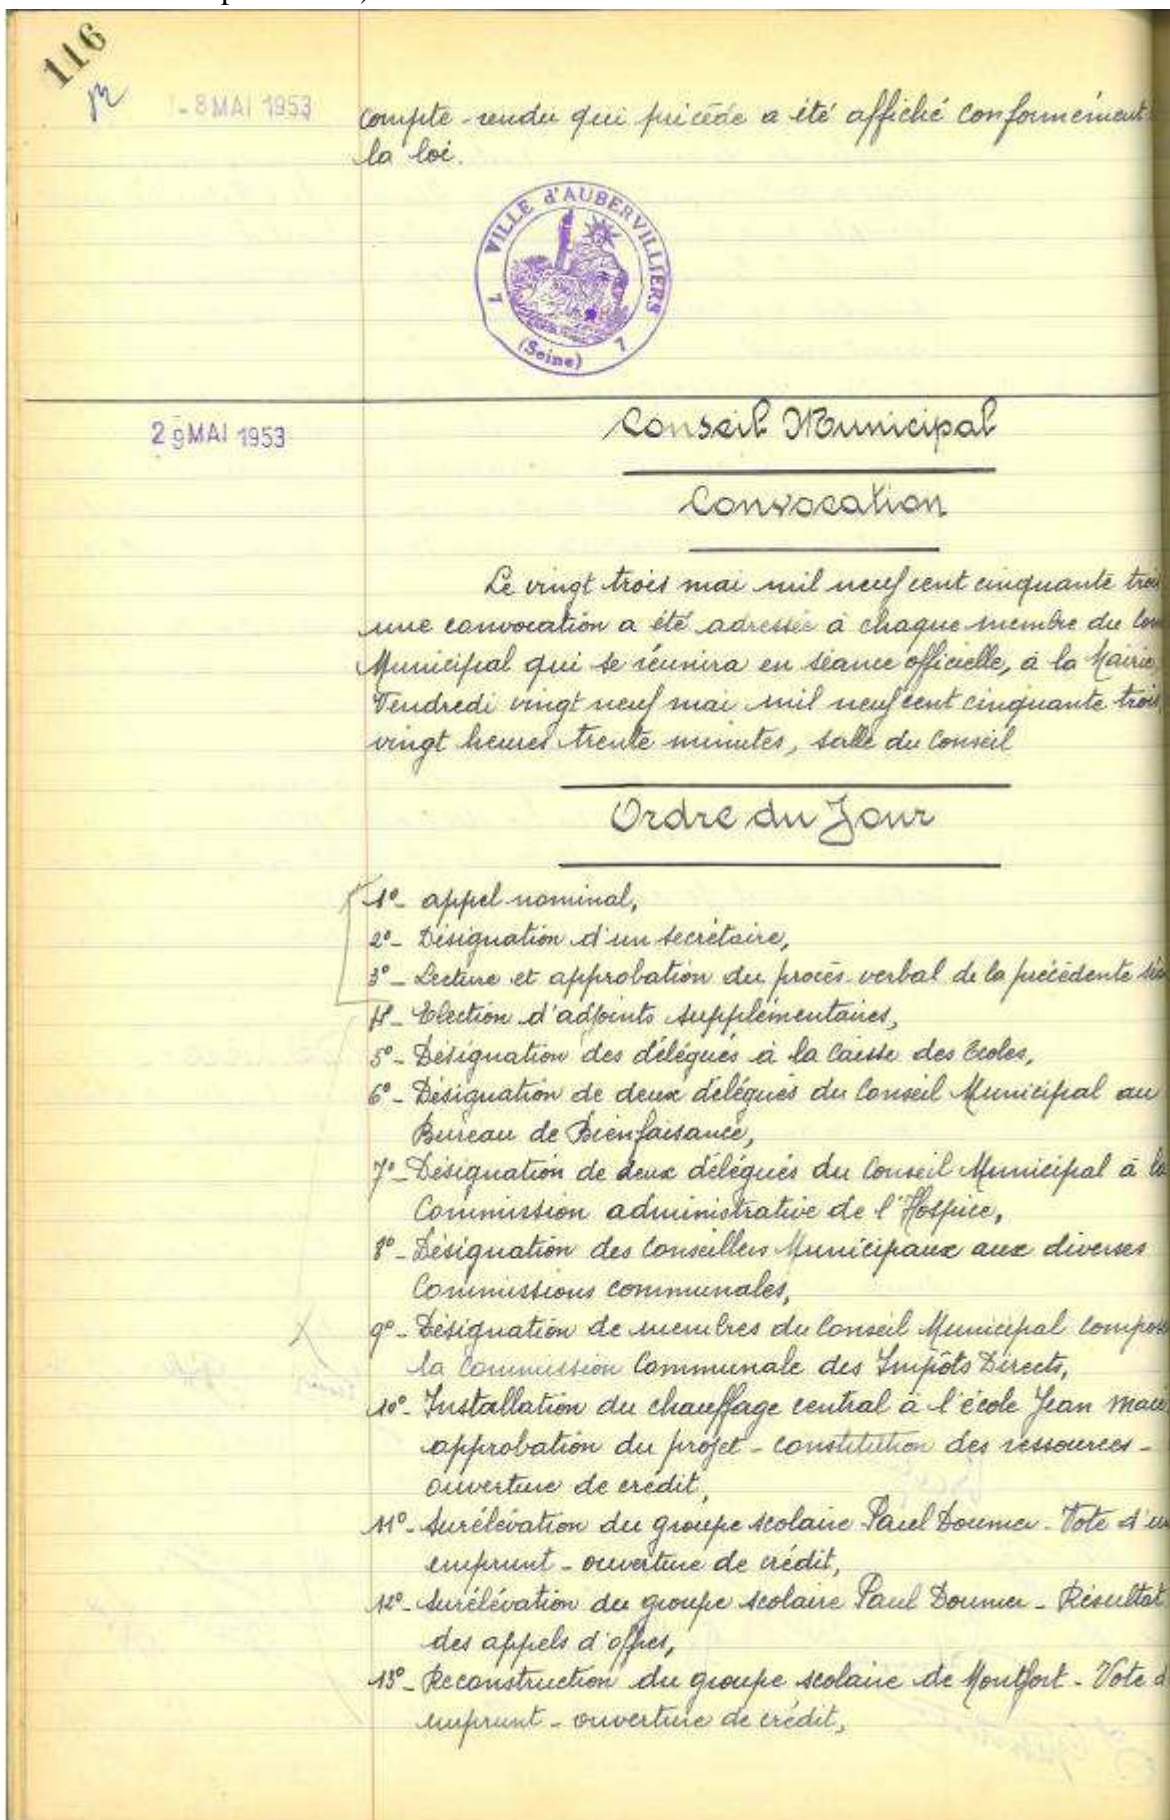 116
- 8 MAI 1953
compte-rendu qui précède a été affiché conformément
la loi.
VILLE d'AUBERVILLIERS
(Seine)
29 MAI 1953
Conseil Municipal
Convocation
Le vingt trois mai mil neuf cent cinquante trois
une convocation a été adressée à chaque membre du Con
Municipal qui se réunira en séance officielle, à la Mairie,
Vendredi vingt neuf mai mil neuf cent cinquante trois,
vingt heures trente minutes, salle du Conseil
Ordre du Jour
1°- appel nominal,
2°- Désignation d'un secrétaire,
3°- Lecture et approbation du procès-verbal de la précédente séa
4°- Election d'adjoints supplémentaires,
5°- Désignation des délégués à la Caisse des Ecoles,
6°- Désignation de deux délégués du Conseil Municipal au
Bureau de Bienfaisance,
7°- Désignation de deux délégués du Conseil Municipal à la
Commission administrative de l'Hospice,
8°- Désignation des Conseillers Municipaux aux diverses
Commissions communales,
9°- Désignation de membres du Conseil Municipal compos
la Commission Communale des Impôts Directs,
10°- Installation du chauffage central à l'école Jean Macé
approbation du projet - constitution des ressources -
ouverture de crédit,
11°- Surélévation du groupe scolaire Paul Doumer - Vote d'un
emprunt - ouverture de crédit,
12°- Surélévation du groupe scolaire Paul Doumer - Résultat
des appels d'offres,
13°- Reconstruction du groupe scolaire de Montfort - Vote d
emprunt - ouverture de crédit,